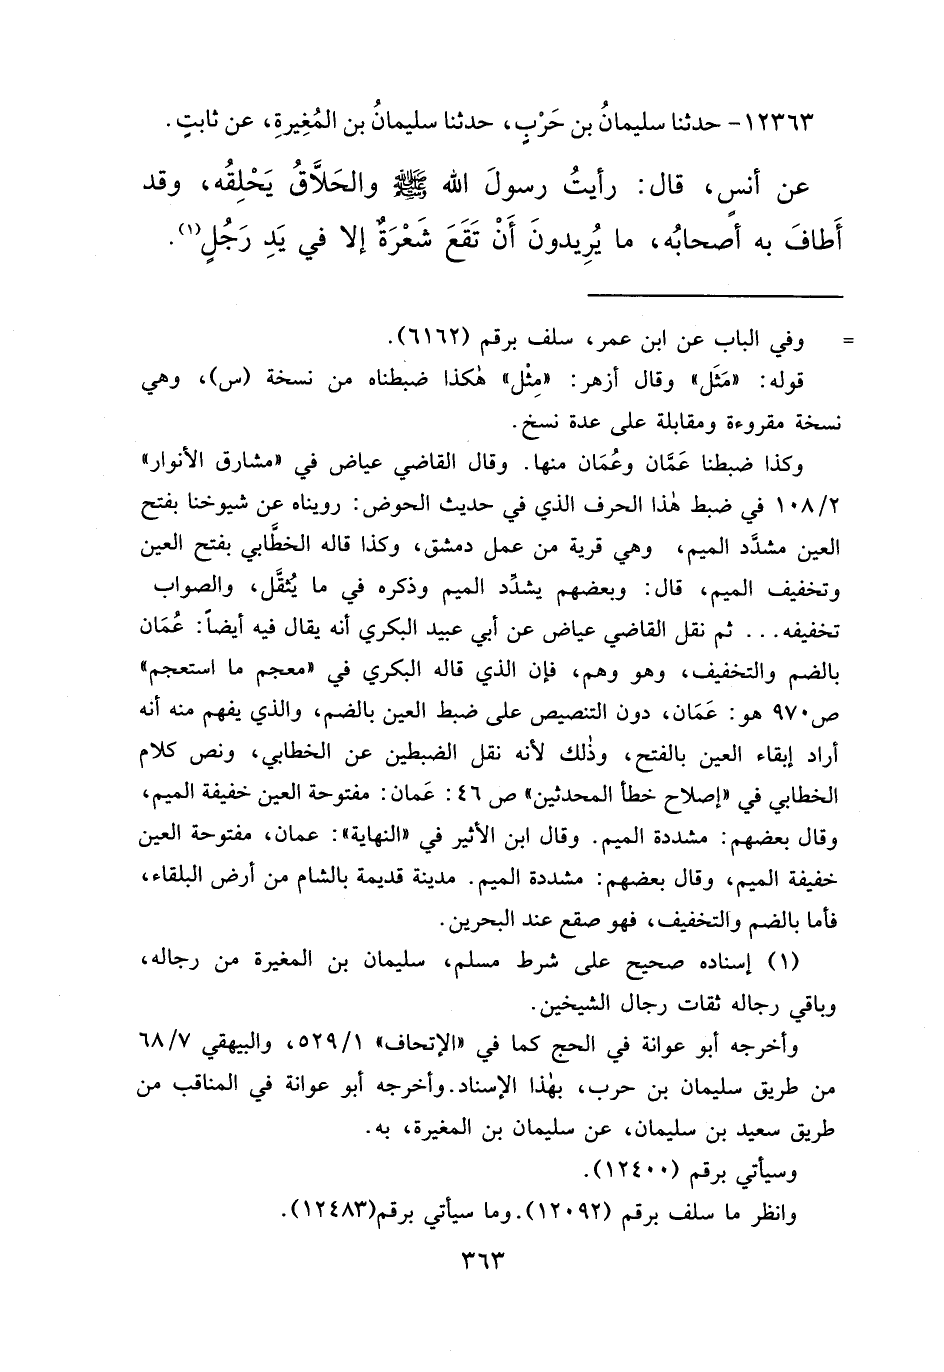 ١٢٣٦٣- حدثنا سليمانُ بن حَرْبٍ، حدثنا سليمانُ بن المُغِيرةِ، عن ثابتٍ.
عن أنسٍ، قال: رأيتُ رسولَ الله ﷺ والحَلَّاقُ يَحْلِقُه، وقد
أَطافَ به أصحابُه، ما يُرِيدونَ أَنْ تَقَعَ شَعْرَةٌ إلا في يَدِ رَجُلٍ(١).
= وفي الباب عن ابن عمر، سلف برقم (٦١٦٢).
قوله: «مَثَل» وقال أزهر: «مِثْل» هٰكذا ضبطناه من نسخة (س)، وهي
نسخة مقروءة ومقابلة على عدة نسخ.
وكذا ضبطنا عَمَّان وعُمَان منها. وقال القاضي عياض في «مشارق الأنوار»
١٠٨/٢ في ضبط هٰذا الحرف الذي في حديث الحوض: رويناه عن شيوخنا بفتح
العين مشدَّد الميم، وهي قرية من عمل دمشق، وكذا قاله الخطَّابي بفتح العين
وتخفيف الميم، قال: وبعضهم يشدِّد الميم وذكره في ما يُثقَّل، والصواب
تخفيفه... ثم نقل القاضي عياض عن أبي عبيد البكري أنه يقال فيه أيضاً: عُمَان
بالضم والتخفيف، وهو وهم، فإن الذي قاله البكري في «معجم ما استعجم»
ص٩٧٠ هو: عَمَان، دون التنصيص على ضبط العين بالضم، والذي يفهم منه أنه
أراد إبقاء العين بالفتح، وذٰلك لأنه نقل الضبطين عن الخطابي، ونص كلام
الخطابي في «إصلاح خطأ المحدثين» ص ٤٦: عَمان: مفتوحة العين خفيفة الميم،
وقال بعضهم: مشددة الميم. وقال ابن الأثير في «النهاية»: عمان، مفتوحة العين
خفيفة الميم، وقال بعضهم: مشددة الميم. مدينة قديمة بالشام من أرض البلقاء،
فأما بالضم والتخفيف، فهو صقع عند البحرين.
(١) إسناده صحيح على شرط مسلم، سليمان بن المغيرة من رجاله،
وباقي رجاله ثقات رجال الشيخين.
وأخرجه أبو عوانة في الحج كما في «الإتحاف» ٥٢٩/١، والبيهقي ٦٨/٧
من طريق سليمان بن حرب، بهٰذا الإسناد.وأخرجه أبو عوانة في المناقب من
طريق سعيد بن سليمان، عن سليمان بن المغيرة، به.
وسيأتي برقم (١٢٤٠٠).
وانظر ما سلف برقم (١٢٠٩٢).وما سيأتي برقم(١٢٤٨٣).
٣٦٣